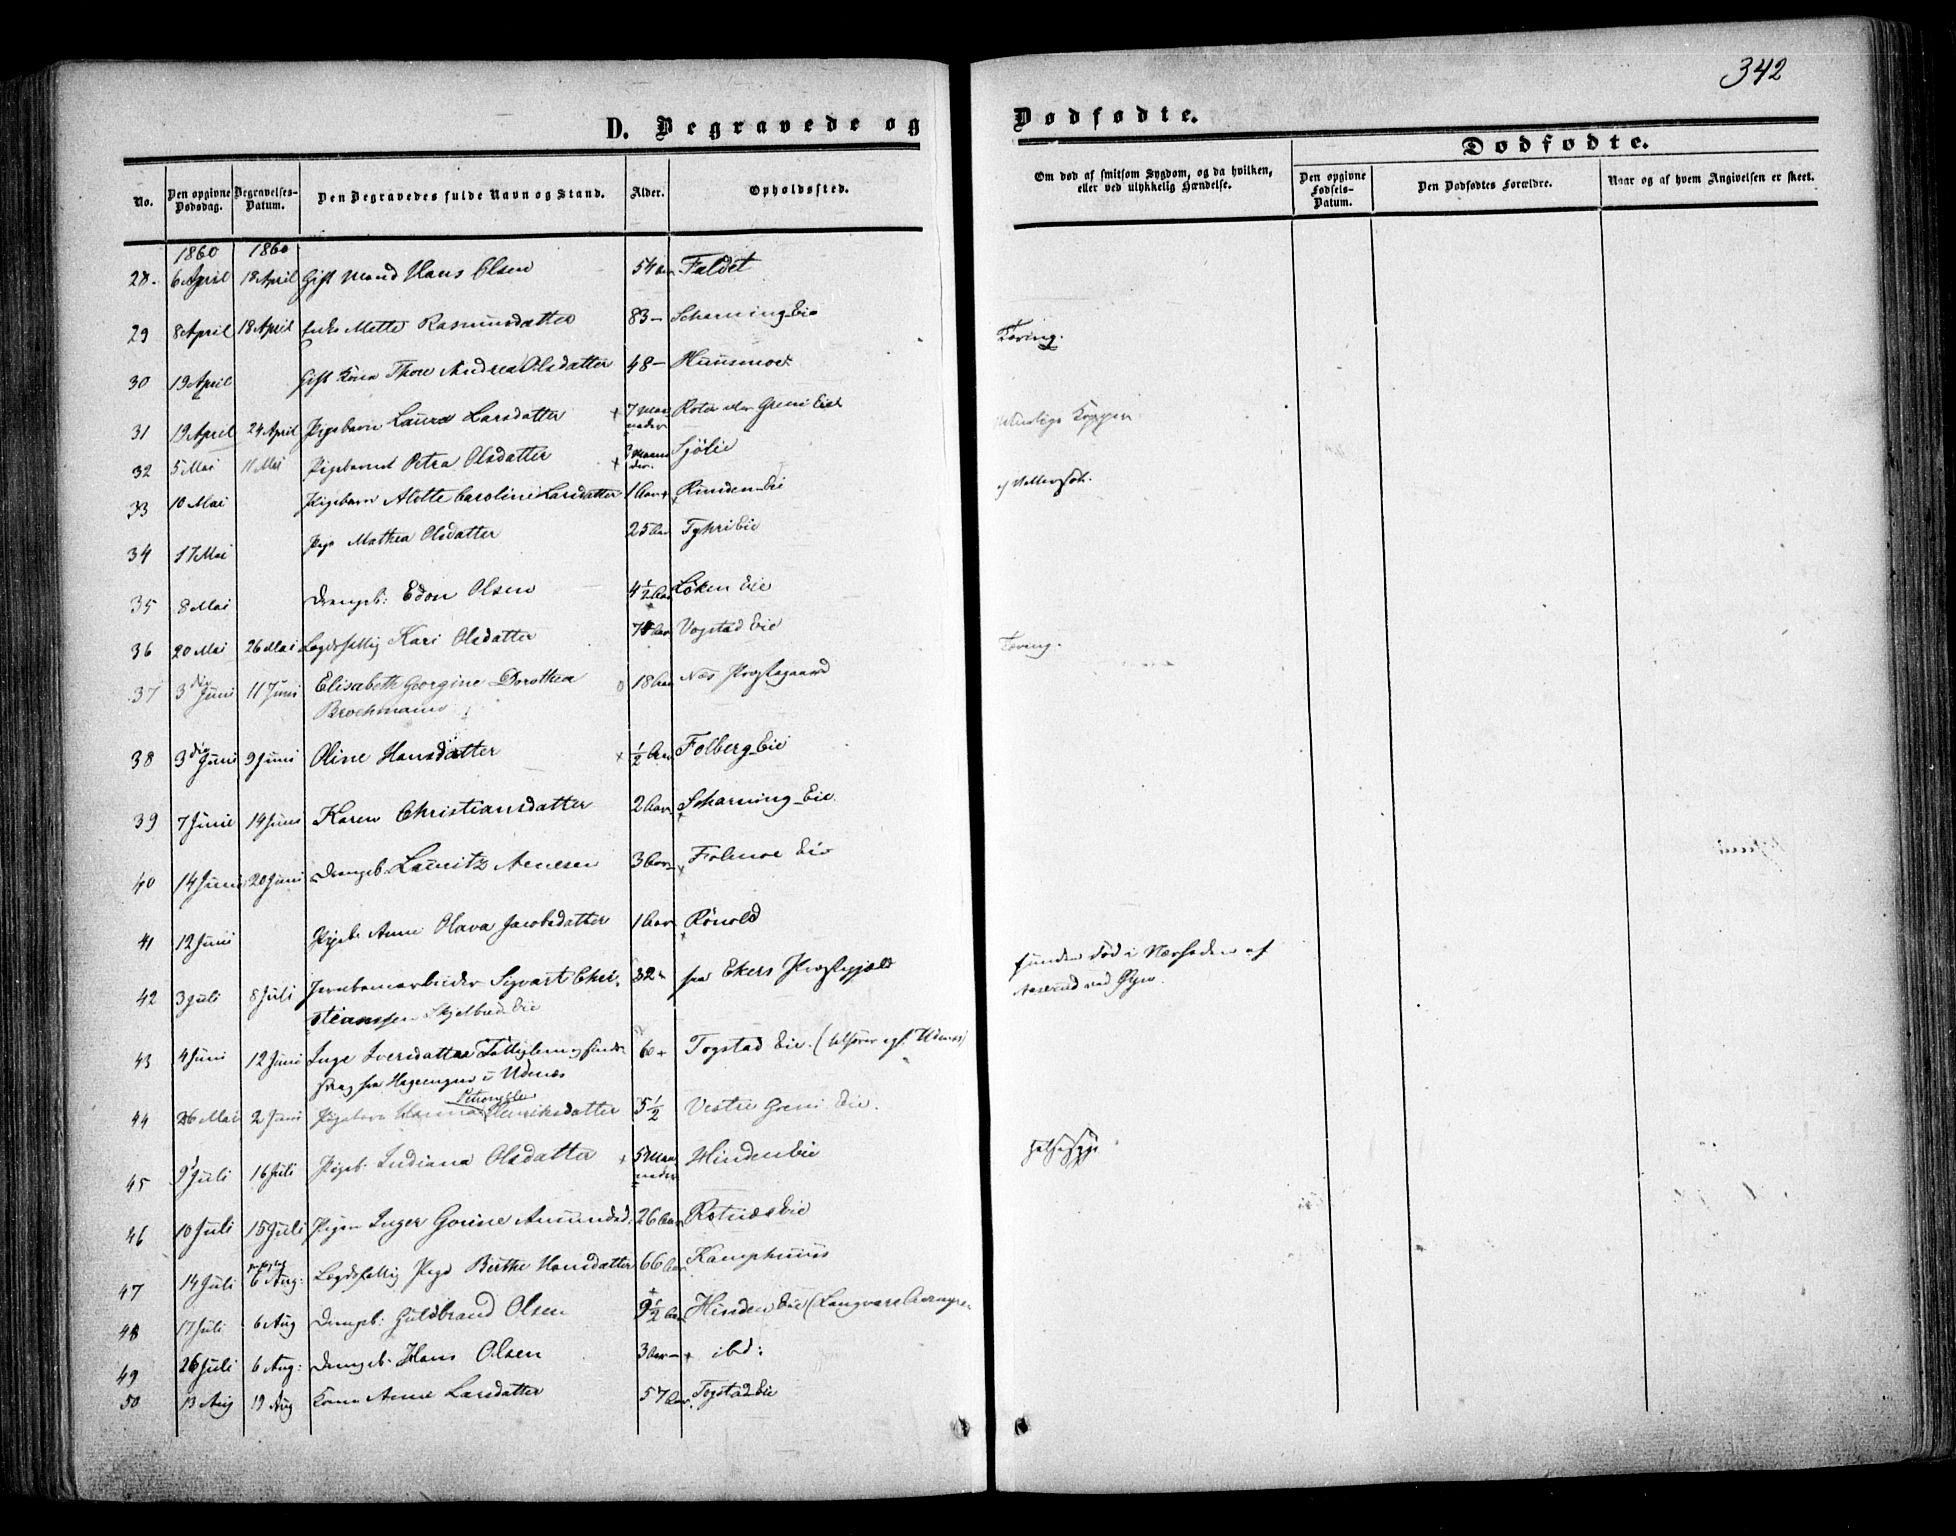 342
D. Begravede og Dødfødte.
Dødfødte.
No.
Den opgivne Dødsdag.
Begravelses-Datum.
Den Begravedes fulde Navn og Stand.
Alder.
Opholdssted.
Om død af smitsom Sygdom, og da hvilken, eller ved ulykkelig Hændelse.
Den opgivne Fødsels-Datum.
Den Dødfødtes Forældre.
Naar og af hvem Angivelsen er skeet.
1860 1860
28. 6 April 18 April Gift Mand Hans Olsen 54 Aar Faldet
29 8 April 18 April Enke Mette Rasmusdatter 83 - Scharning Eie Tæring.
30 19 April Gift Kone Thore Andrea Olsdatter 48 - Huusmoe
31 19 April 24 April Pigebarn Laura Larsdatter + 7 Maaneder Roter Greni Eie Kopper
32 5 Mai 11 Mai Pigebarnet Petra Olsdatter + Sjölie
33 10 Mai Pigebarn Alette Caroline Larsdatter 1 Aar + Runden Eie
34 17 Mai Pige Mathea Olsdatter 25 Aar Tyhri Eie
35 8 Mai Drengeb: Edon Olsen 4 1/2 Aar Løken Eie
36 20 Mai 26 Mai Lægdsfattig Kari Olsdatter Aar Vogstad Eie Tæring.
37 3 die Juni 11 Juni Elisabeth Georgine Dorothea 18 Aar Næs Præstegaard
Brochmann
38 3 die Juni 9 Juni Oline Hansdatter + 1/2 Aar Folberg Eie
39 7 Junii 14 Juni Karen Christiansdatter 2 Aar Scharning Eie.
40 14 Juni 20 Juni Drengeb. Lauritz Arnesen 3 Aar Folmoe Eie
41 12 Juni Pigeb. Anne Olava Jacobsdatter 1 Aar Rönold
42 3 Juli 8 Juli Jernbanearbeider Sigvart Chri- 32 fra Ekers Præstegjæld funden død i Nærheden af
stianssen Skjelbred Eie Aaserud ved
43 4 Juni 12 Juni Inge Iversdatter Fattiglem og 60 Togstad Eie. (
fra i Udenæs
44 26 Mai 2 Juni Pigebarn Hanna Petronelle Henriksdatter 5 1/2 Vestre Greni Eie.
45 9 Juli 16 Juli Pigeb. Indiana Olsdatter + 5 Maaneder Hinden Eie Halsesyge
46 10 Juli 15 Juli Pigen Inger Gorine Amundsd. 26 Aar Rotnæs Eie
47 14 Juli 6 Aug: Lægdsfattig Pige Birthe Hansdatter 66 Aar Kamphuus
48 17 Juli 6 Aug Drengeb: Guldbrand Olsen 9 1/2 Aar Hinden Eie (
49 26 Juli 6 Aug: Drengeb. Hans Olsen 3 Aar - + ibd:
50 13 Aug 19 Aug Kone Anne Larsdatter 57 Aar. Togstad Eie